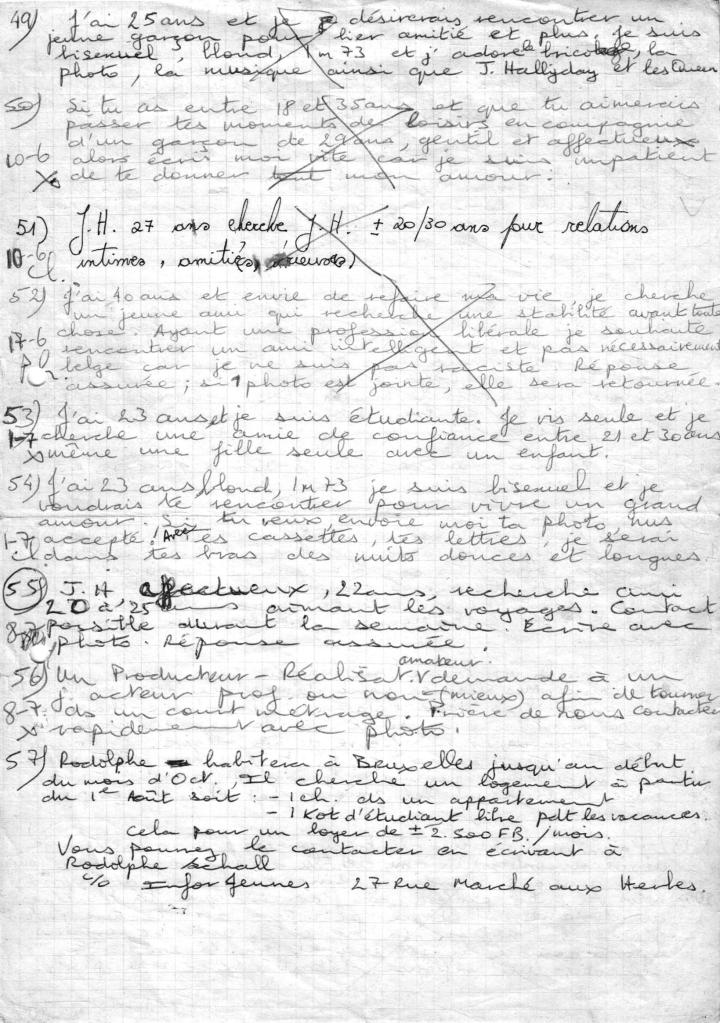 49) J'ai 25 ans et je désirerais rencontrer un
jeune garçon pour lier amitié et plus. Je suis
bisexuel, blond, 1m73 et j'adore le bricolage, la
photo, la musique ainsi que J. Hallyday et les Queen
50) Si tu as entre 18 et 35 ans et que tu aimerais
passer tes moments de loisirs en compagnie
d'un garçon de 29 ans, gentil et affectueux
10-6 alors écris moi vite car je suis impatient
X de te donner tout mon amour.
51) J.H. 27 ans cherche J.H. ± 20/30 ans pour relations
10-6 intimes, amitiés, sérieuses)
Cl.
52) J'ai 40 ans et envie de refaire ma vie, je cherche
un jeune ami qui recherche une stabilité avant toute
chose. Ayant une profession libérale je souhaite
17-6 rencontrer un ami intelligent et pas nécessairement
belge car je ne suis pas raciste. Réponse
assurée ; si 1 photo est jointe, elle sera retournée.
53) J'ai 23 ans et je suis étudiante. Je vis seule et je
1-7 cherche une amie de confiance entre 21 et 30 ans
X même une fille seule avec un enfant.
54) J'ai 23 ans, blond, 1m73 je suis bisexuel et je
voudrais te rencontrer pour vivre un grand
amour. Si tu veux, envoie moi ta photo, nus
1-7 accepté. Avec tes cassettes, tes lettres, je serai
dans tes bras des nuits douces et longues.
55) J.H affectueux, 22 ans, recherche ami
20 à 25 ans aimant les voyages. Contact
8-7 possible durant la semaine. Ecrire avec
photo. Réponse assurée.
56) Un Producteur - Réalisat. amateur demande à un
J. acteur prof. ou non (mieux) afin de tourner
8-7. ds un court métrage. Prière de nous contacter
X rapidement avec photo.
57) Rodolphe habitera à Bruxelles jusqu'au début
du mois d'Oct. Il cherche un logement à partir
du 1er Août soit : - 1 ch. ds un appartement
- 1 Kot d'étudiant libre pdt les vacances.
Cela pour un loyer de ± 2.500 FB. /mois.
Vous pouvez le contacter en écrivant à
Rodolphe Schall
c/o Infor Jeunes 27 Rue Marché aux Herbes.